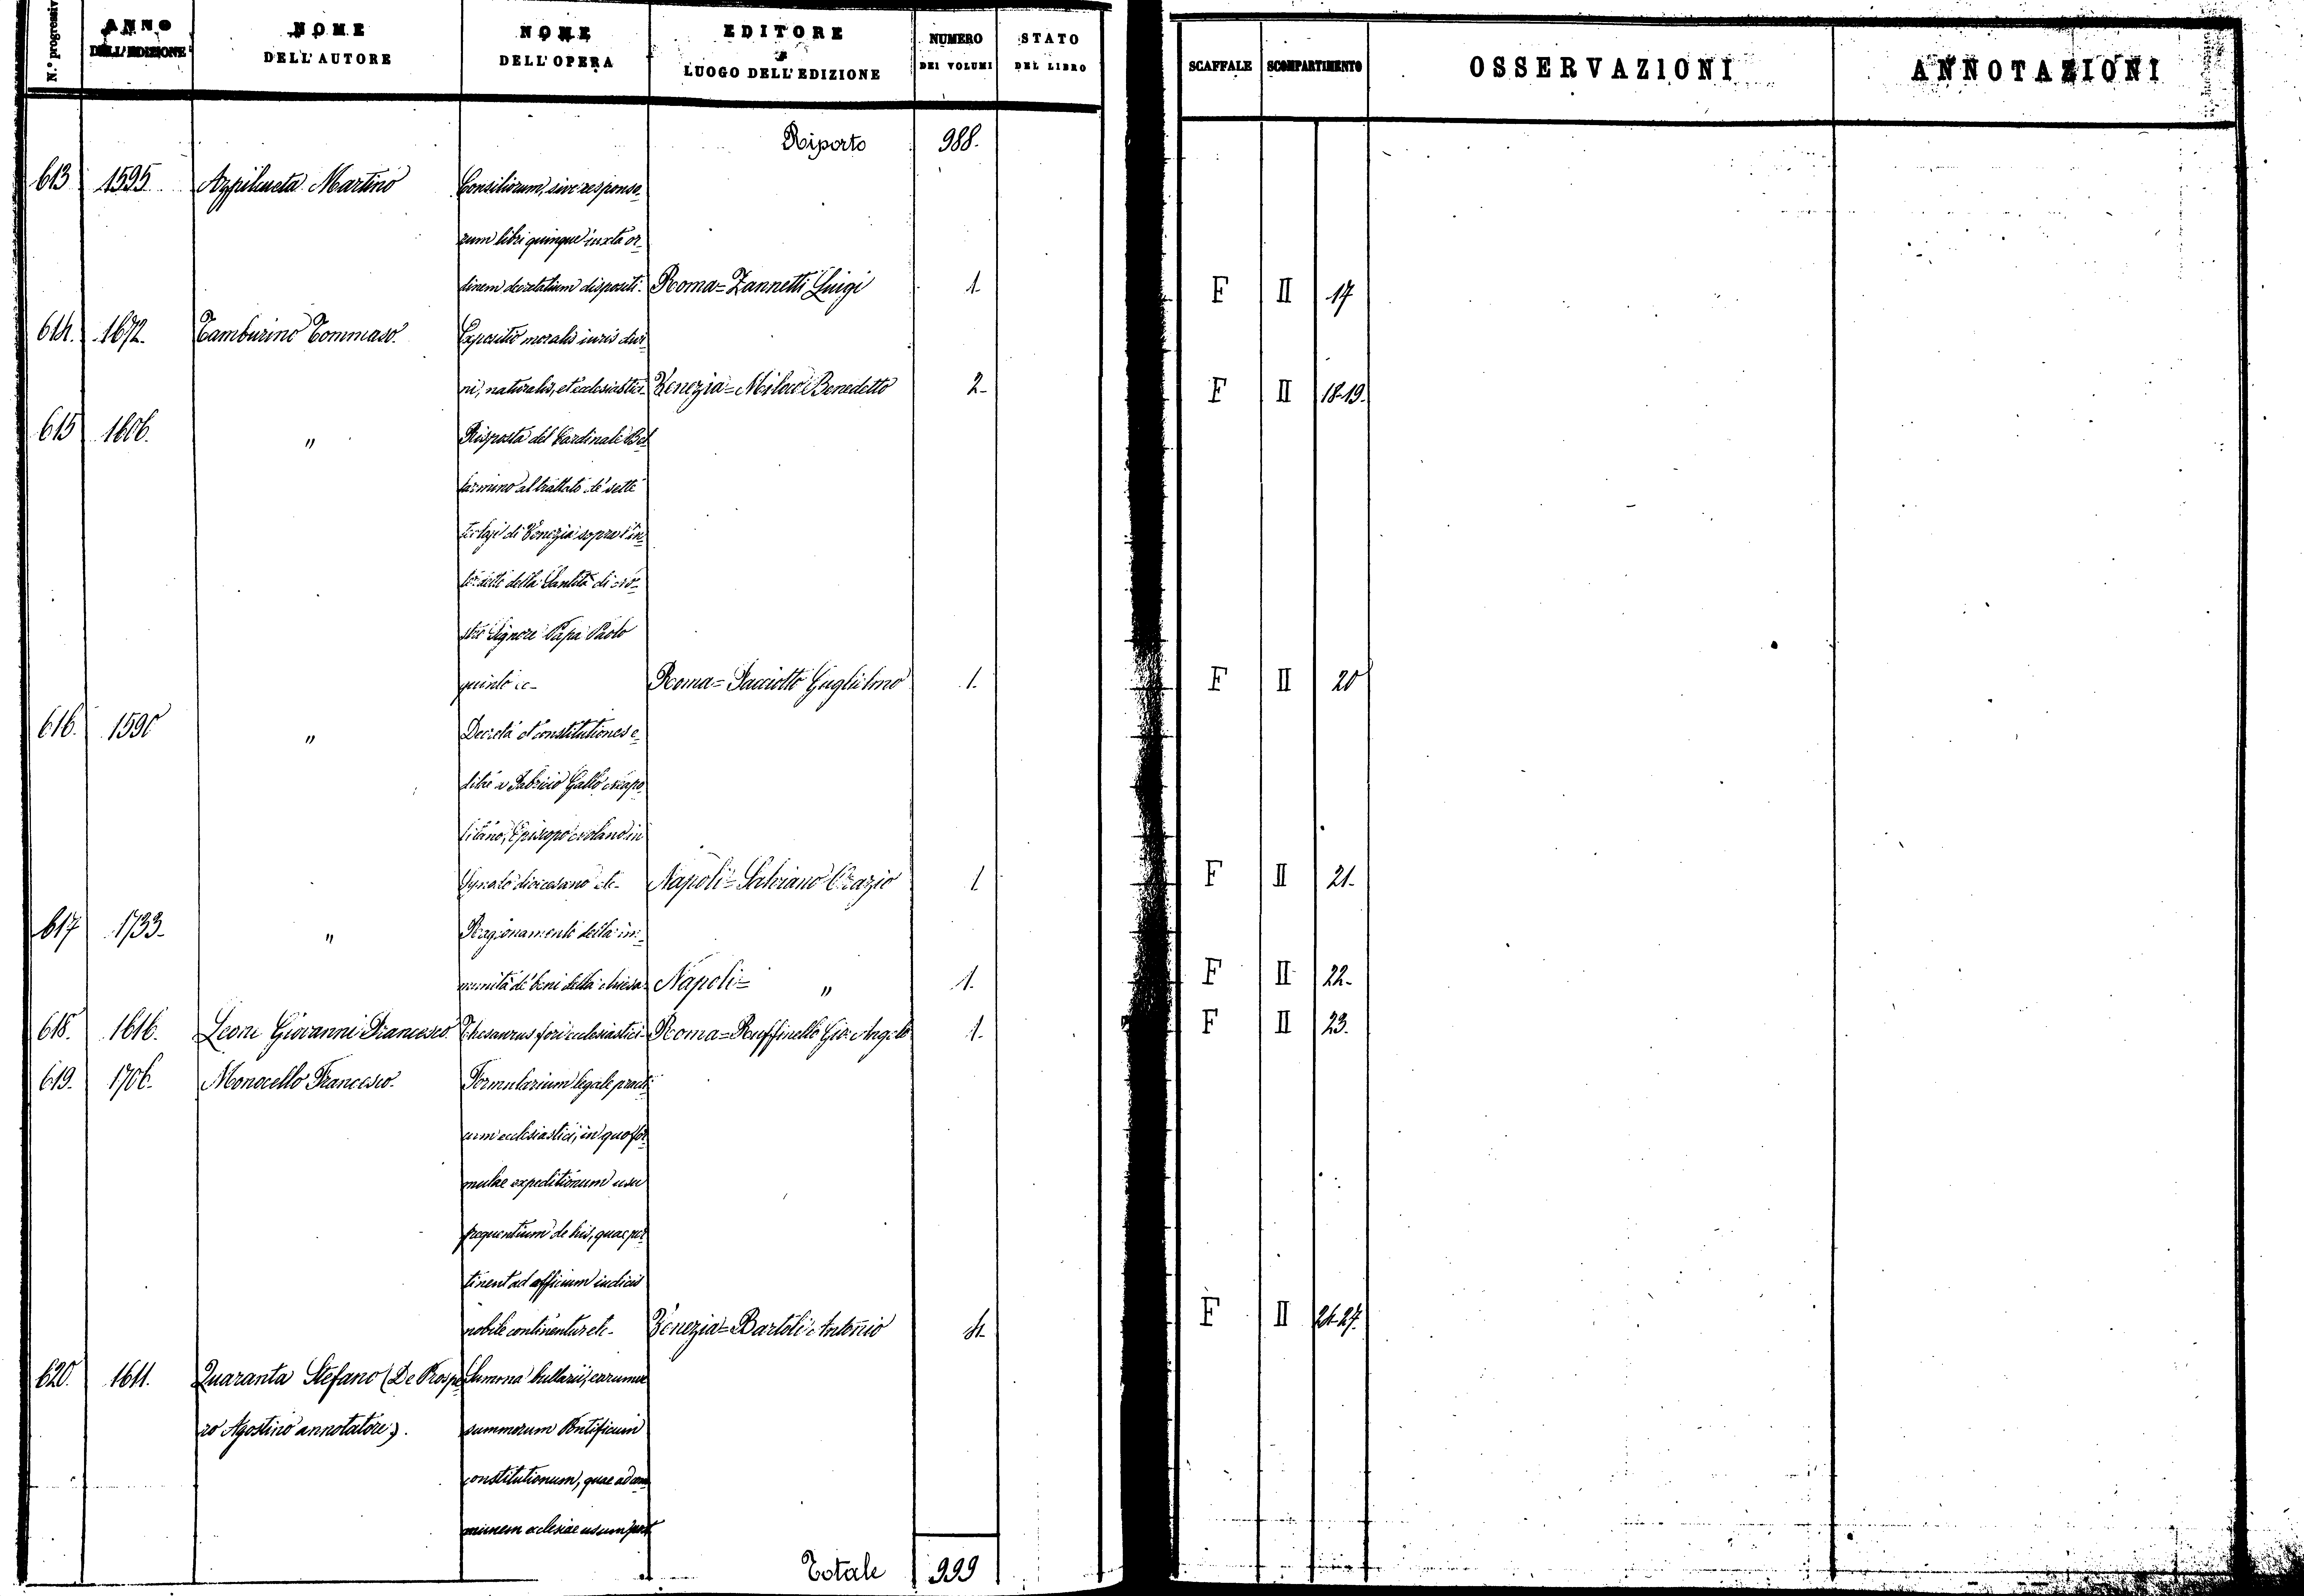 N.º progressivo ANNO DELL'EDIZIONE NOME DELL'AUTORE NOME DELL'OPERA EDITORE e LUOGO DELL'EDIZIONE NUMERO DEI VOLUMI STATO DEL LIBRO SCAFFALE SCOMPARTIMENTO OSSERVAZIONI ANNOTAZIONI
Riporto 988.
613 1595 Azpilcueta Martino Consiliorum, sive responso_
rum libri quinque iuxta or_
dinem decretalium dispositi. Roma = Zannetti Luigi 1. F II 17
614. 1672. Tamburino Tommaso. Expositio moralis iuris divi_
ni, naturalis, et ecclesiastici_ Venezia = Miloco Benedetto 2_ F II 18-19.
615 1606. " Risposta del Cardinale Bel_
larmino al trattato de' sette
teologi di Venezia sopra l'in_
terdetto della Santità di no_
stro Signore Papa Paolo
quinto ec_ Roma = Facciotto Guglielmo 1. F II 20
616. 1590 " Decreta et constitutiones e_
dite a Fabricio Gallo neapo_
litano, Episcopo nolano in
Synodo diocesano etc_ Napoli = Salviano Orazio 1 F II 21_
617 1733_ " Ragionamento della im_
munità de' beni della chiesa_ Napoli = " 1. F II 22_
618. 1616. Leone Giovanni Francesco. Thesaurus fori ecclesiastici_ Roma = Ruffinello Gio: Angelo 1. F II 23.
619. 1706. Monacello Francesco. Formularium legale practi_
cum ecclesiastici, in quo for_
mulae expeditionum usu
frequentium de his, quae per_
tinent ad officium iudicis
nobile continentur etc_ Venezia = Bartoli Antonio 4_ F II 24-27.
620. 1611. Quaranta Stefano (De Prospe_ Summa bullarii, earumve
ro Agostino annotatore). summorum Pontificum
constitutionum, quae ad com_
munem ecclesiae usum post
Totale 999